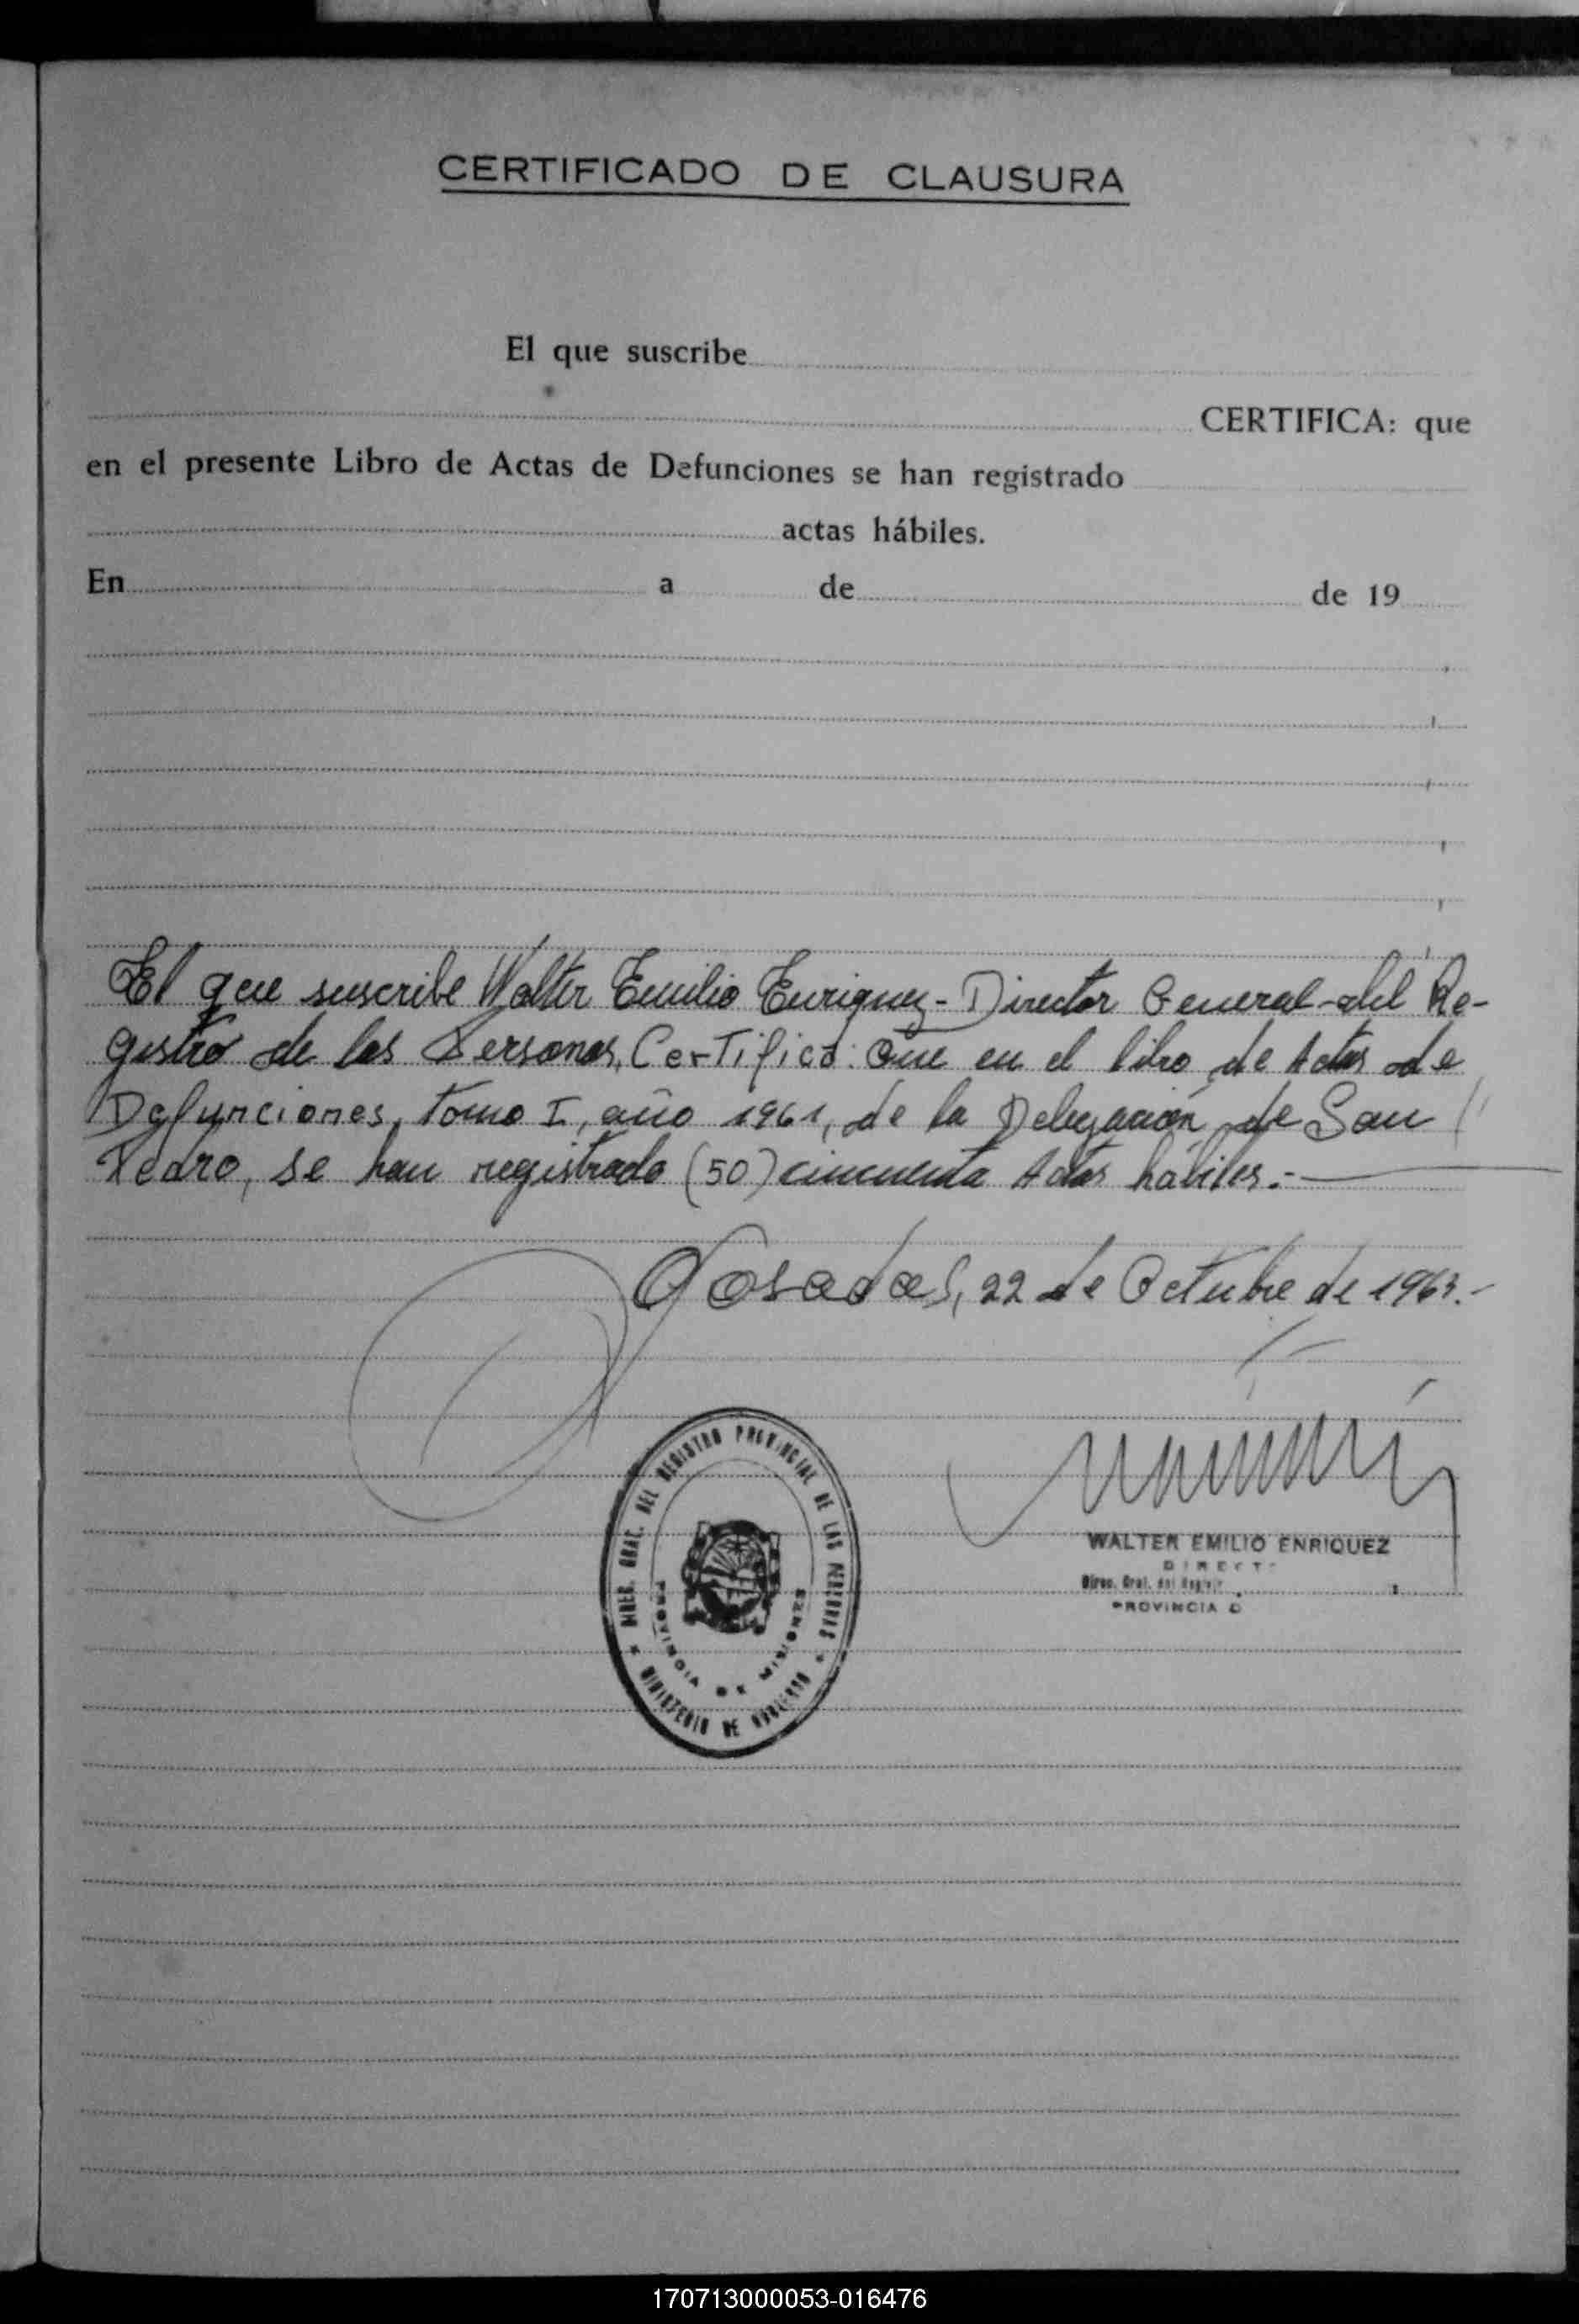 CERTIFICADO DE CLAUSURA
El que suscribe
CERTIFICA: que
en el presente Libro de Actas de Defunciones se han registrado
actas hábiles.
En a de de 19
El que suscribe Walter Emilio Enriquez - Director General del Re-
gistro de las Personas, Certifica: Que en el libro de Actas de
Defunciones, tomo I, año 1961, de la Delegación de San
Pedro, se han registrado (50) cincuenta Actas hábiles.-
Posadas, 22 de Octubre de 1963.-
DIREC. GRAL. DEL REGISTRO PROVINCIAL DE LAS PERSONAS
PROVINCIA DE MISIONES
MINISTERIO DE GOBIERNO
WALTER EMILIO ENRIQUEZ
DIRECT
Direc. Gral. del Registr
PROVINCIA D
170713000053-016476